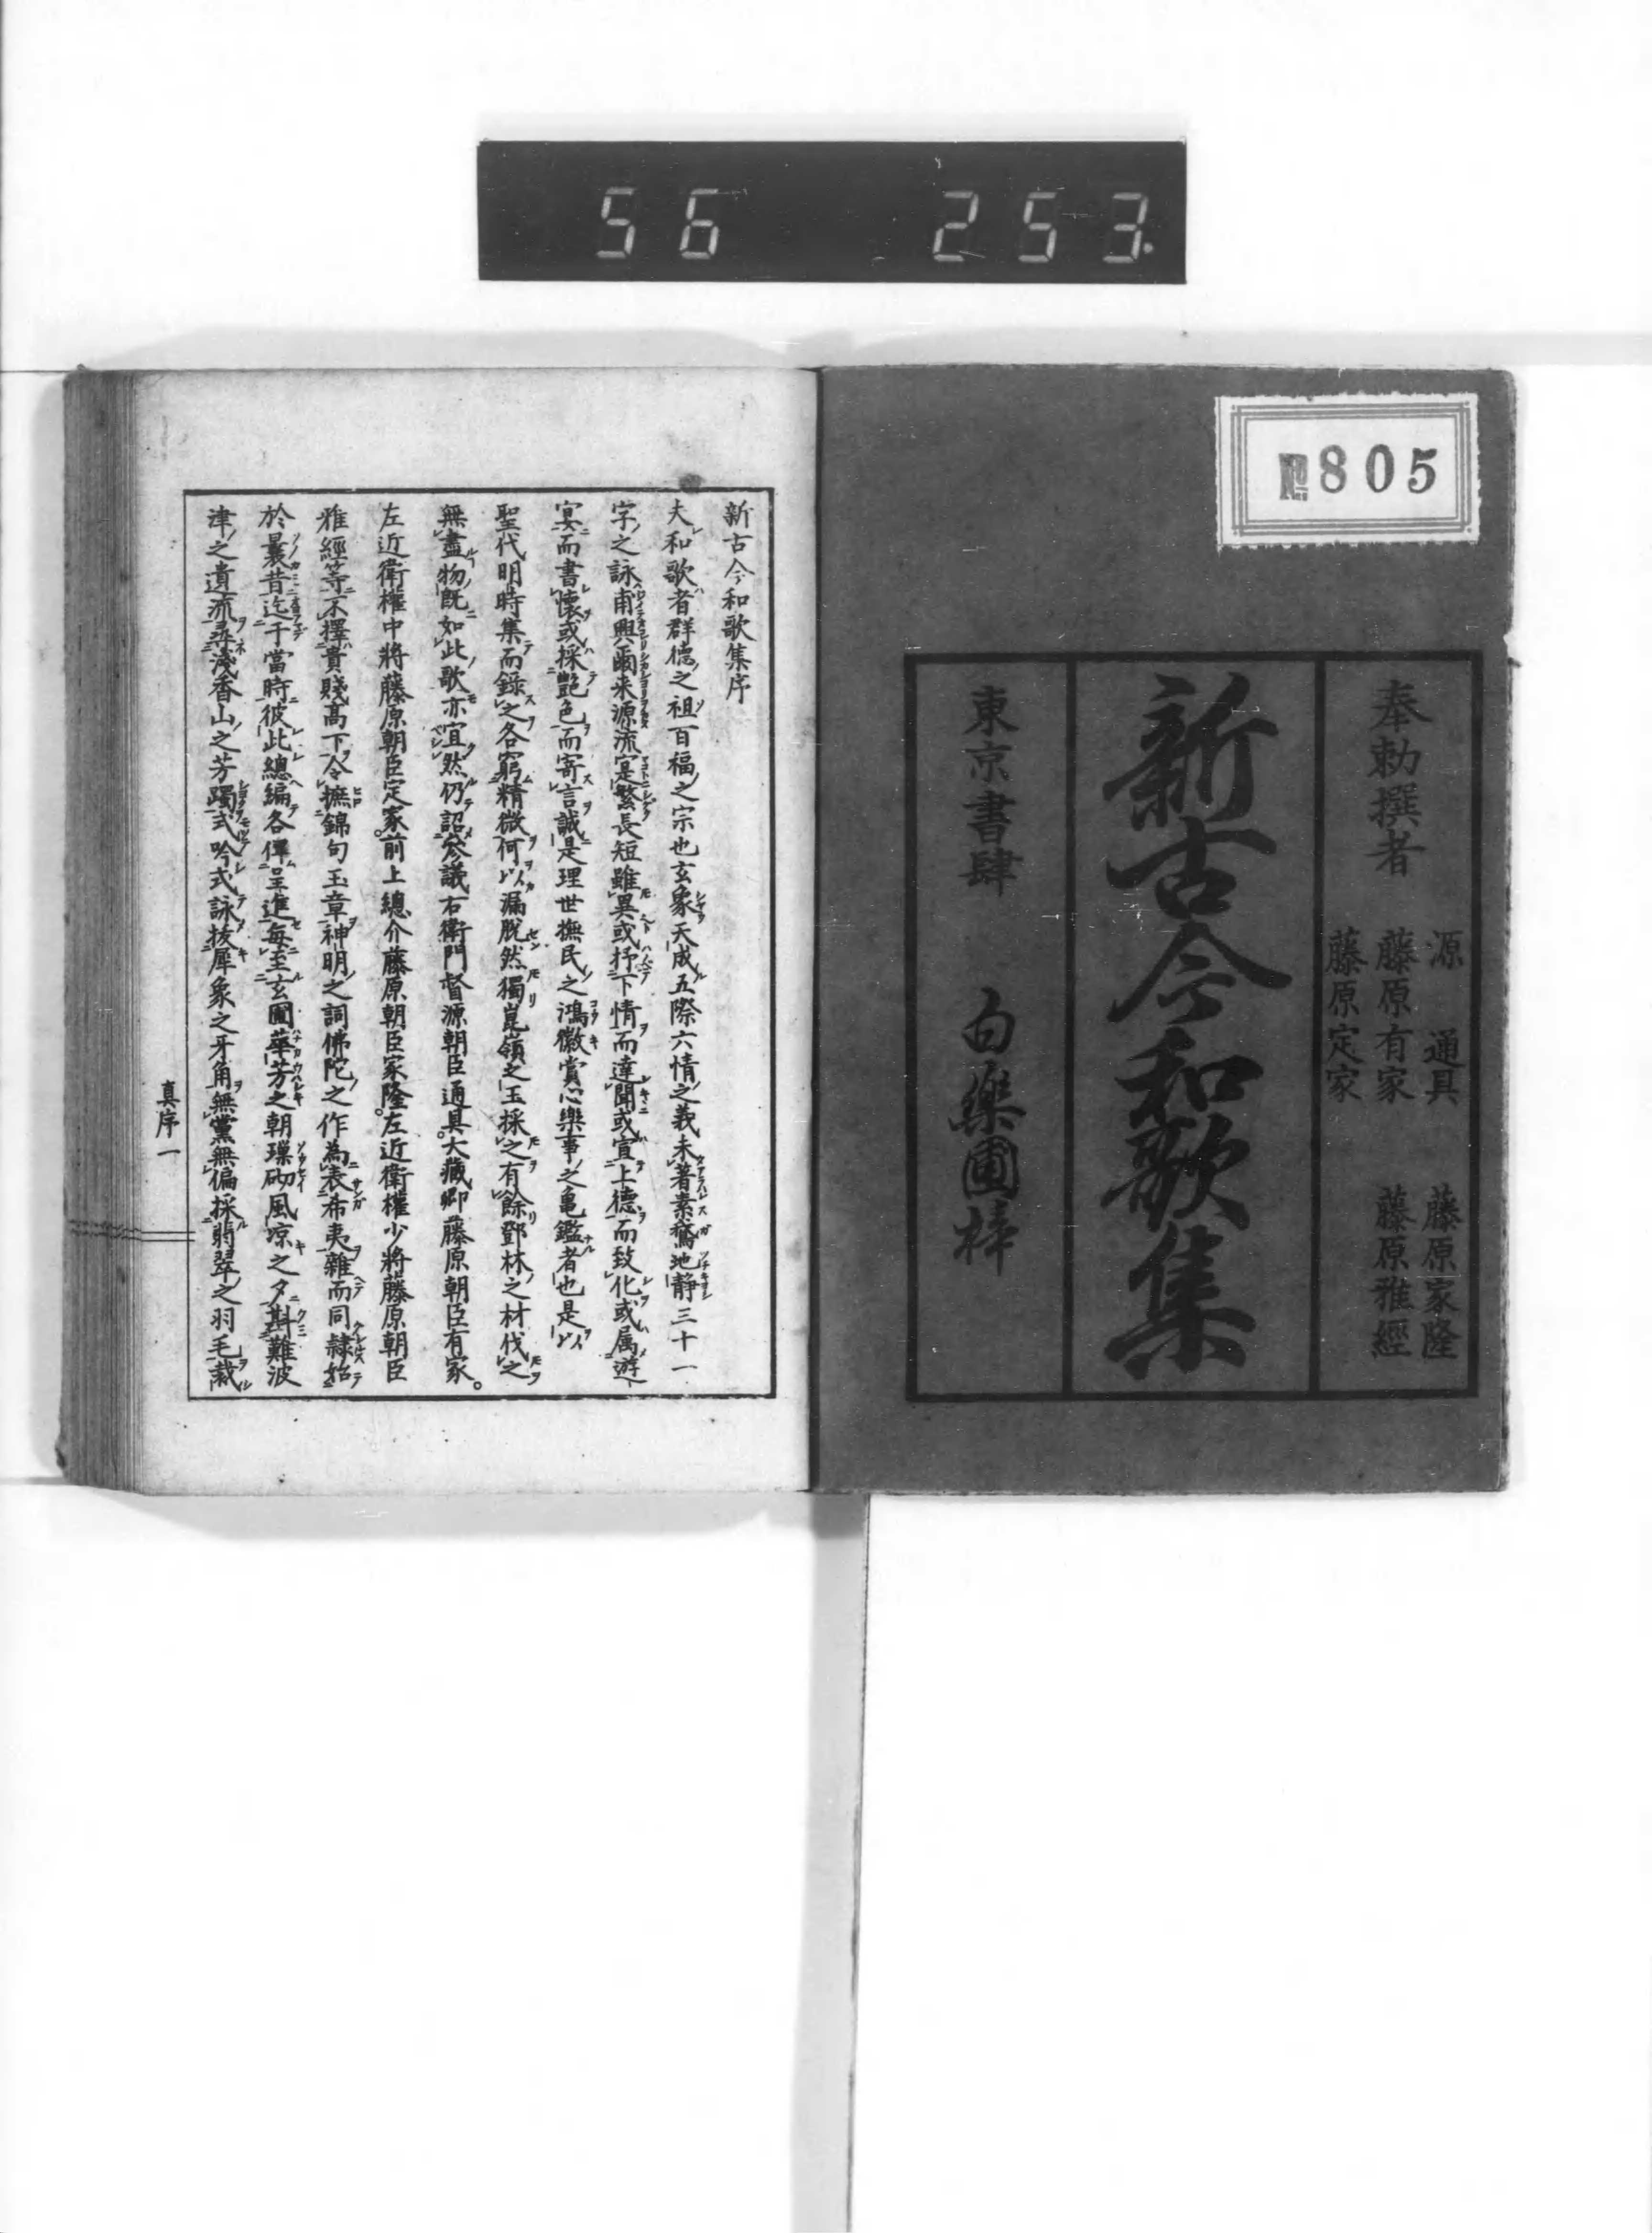 56 253.
№805
奉勅撰者
源 通具 藤原家隆
藤原有家 藤原雅經
藤原定家
新古今和歌集
東京書肆 白樂圃梓
新古今和歌集序
夫和歌者群德之祖百福之宗也玄象天成五際六情之義未著素鵞地静三十一
字之詠甫興爾来源流寔繁長短雖異或抒下情而達聞或宣上德而致化或属遊
宴而書懷或採艶色而寄言誠是理世撫民之鴻徽賞心樂事之亀鑑者也是以
聖代明時集而録之各窮精微何以漏脱然猶崑嶺之玉採之有餘鄧林之材伐之
無盡物既如此歌亦宜然仍詔參議右衛門督源朝臣通具。大藏卿藤原朝臣有家。
左近衛權中將藤原朝臣定家。前上總介藤原朝臣家隆。左近衛權少將藤原朝臣
雅經等不擇貴賤高下令摭錦句玉章神明之詞佛陀之作為表希夷雜而同隷始
於曩昔迄于當時彼此總編各俾呈進每至玄圃華芳之朝璅砌風凉之夕斟難波
津之遺流尋淺香山之芳躅式吟式詠拔犀象之牙角無黨無偏採翡翠之羽毛裁
真序一